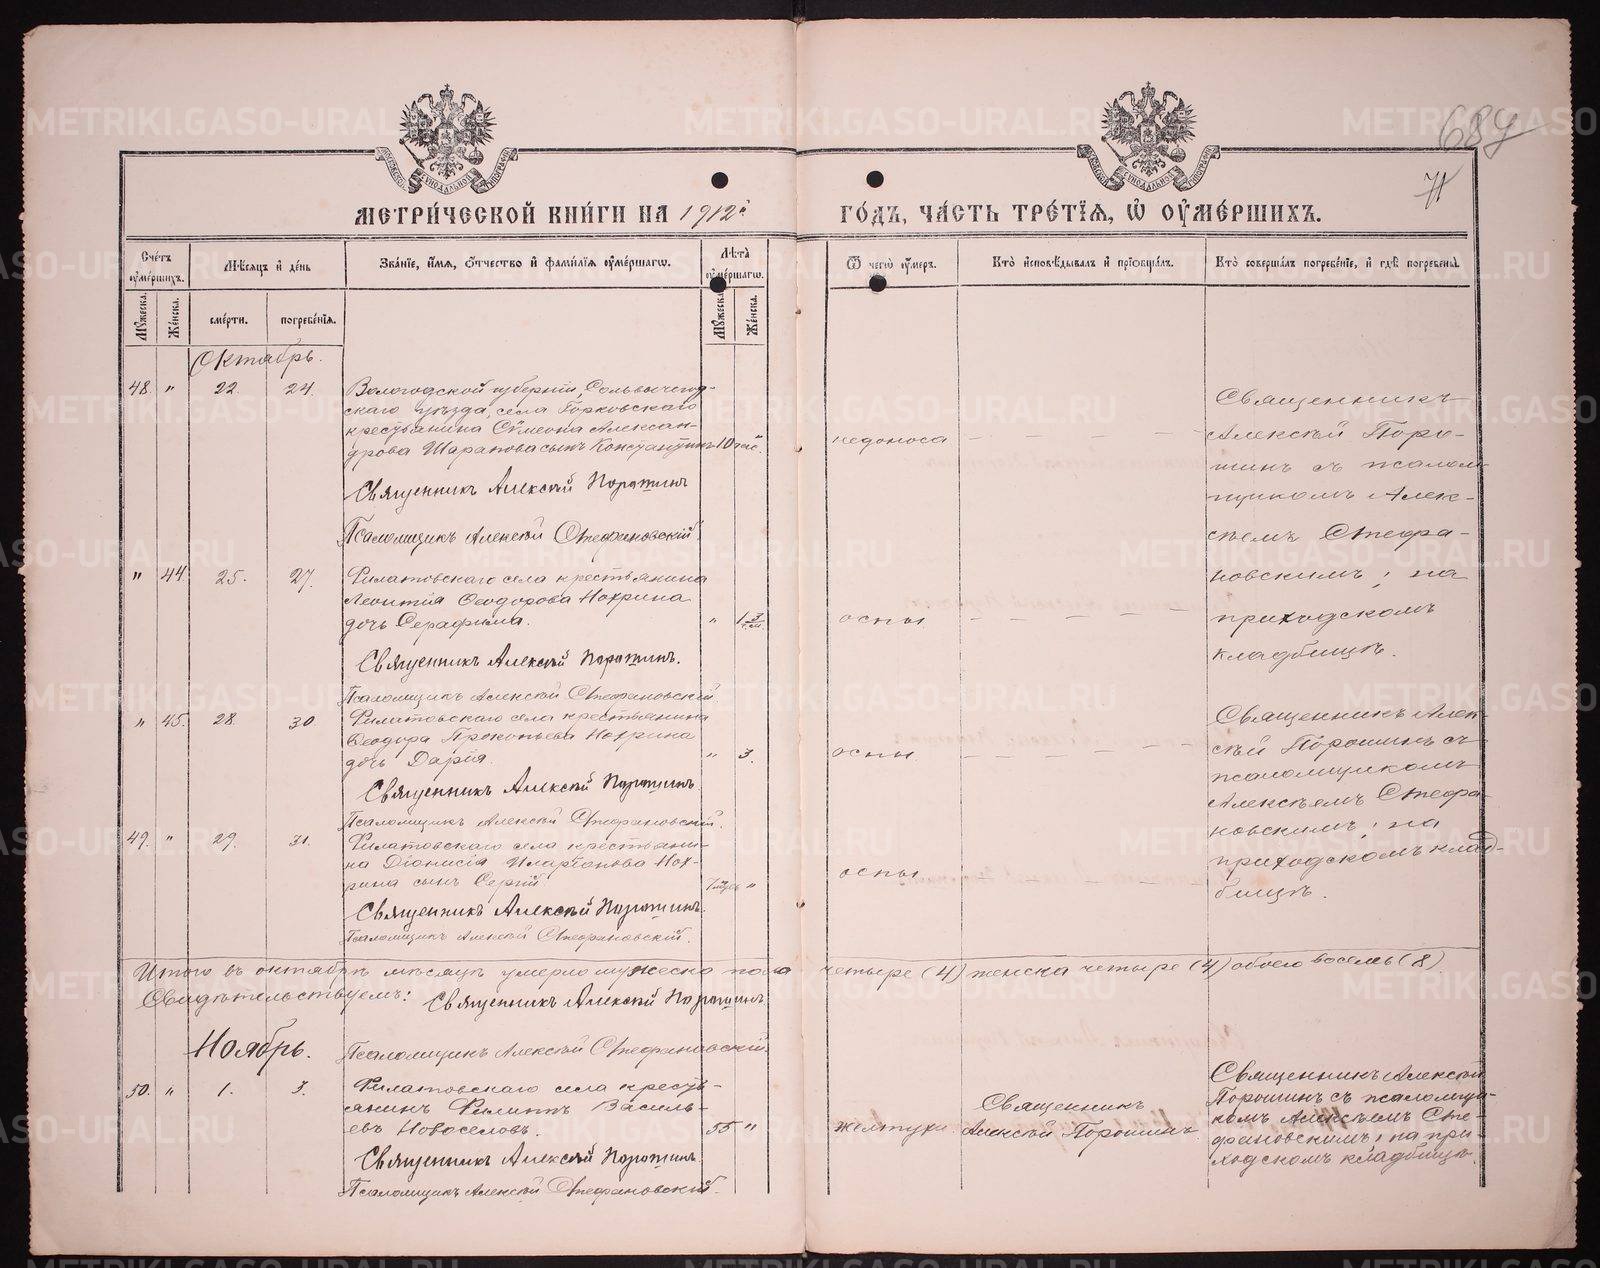 689
71
МЕТРИ́ЧЕСКОЙ КНИ́ГИ НА 1912й
ГО́ДЪ, ЧА́СТЬ ТРЕ́ТЇѦ, Ѡ҆ ОУ҆МЕ́РШИХЪ.
Сче́тъ оу҆ме́ршихъ.
Мѣ́сѧцъ и҆ де́нь
Зва́нїе, и҆́мѧ, ѻ҆́тчество и҆ фами́лїѧ оу҆ме́ршагѡ.
Лѣ́та оу҆ме́ршагѡ.
Ѿ чегѡ̀ оу҆́меръ.
Кто̀ и҆сповѣ́дывалъ и҆ прїѡбща́лъ.
Кто̀ соверша́лъ погребе́нїе, и҆ гдѣ̀ погребены̀.
Мꙋ́жеска.
Же́нска.
сме́рти.
погребе́нїѧ.
Мꙋ́жеска.
Же́нска.
Октябрь.
48. " 22. 24. Вологодской губерніи, Сольвычегод-
скаго уѣзда, села Горковскаго
крестьянина Сѵмеона Алексан-
дрова Шарапова сынъ Константинъ 10 час. недоноса
Священникъ Алексѣй Порошинъ
Псаломщикъ Алексѣй Стефановскій.
Священникъ
Алексѣй Поро-
шинъ съ псалом-
щикомъ Алек-
сѣемъ Стефа-
новскимъ; на
приходскомъ
кладбищѣ.
" 44 25. 27. Филатовскаго села крестьянина
Леонтія Ѳеодорова Нохрина
дочь Серафима. " 1 3 г.м. оспы
Священникъ Алексѣй Порошинъ.
Псаломщикъ Алексѣй Стефановскій.
" 45. 28. 30 Филатовскаго села крестьянина
Ѳеодора Прокопьева Нохрина
дочь Дарія. " 3. оспы
Священникъ Алексѣй Порошинъ.
Псаломщикъ Алексѣй Стефановскій.
Священникъ Алек-
сѣй Порошинъ съ
псаломщикомъ
Алексѣемъ Стефа-
новскимъ; на
приходскомъ клад-
бищѣ.
49. " 29. 31. Филатовскаго села крестьяни-
на Діонисія Иларіонова Нох-
рина сынъ Сергій " оспы
Священникъ Алексѣй Порошинъ.
Псаломщикъ Алексѣй Стефановскій.
Итого въ октябрѣ мѣсяцѣ умерло мужеска пола четыре (4) женска четыре (4) обоего восемь (8)
Свидѣтельствуемъ: Священникъ Алексѣй Порошинъ
Псаломщикъ Алексѣй Стефановскій.
Ноябрь.
50. " 1. 3. Филатовскаго села кресть-
янинъ Филиппъ Василь-
евъ Новоселовъ. 55 " желтухи
Священникъ Алексѣй Порошинъ.
Псаломщикъ Алексѣй Стефановскій.
Священникъ
Алексѣй Порошинъ
Священникъ Алексѣй
Порошинъ съ псаломщи-
комъ Алексѣемъ Сте-
фановскимъ; на при-
ходскомъ кладбищѣ.
METRIKI.GASO-URAL.RU